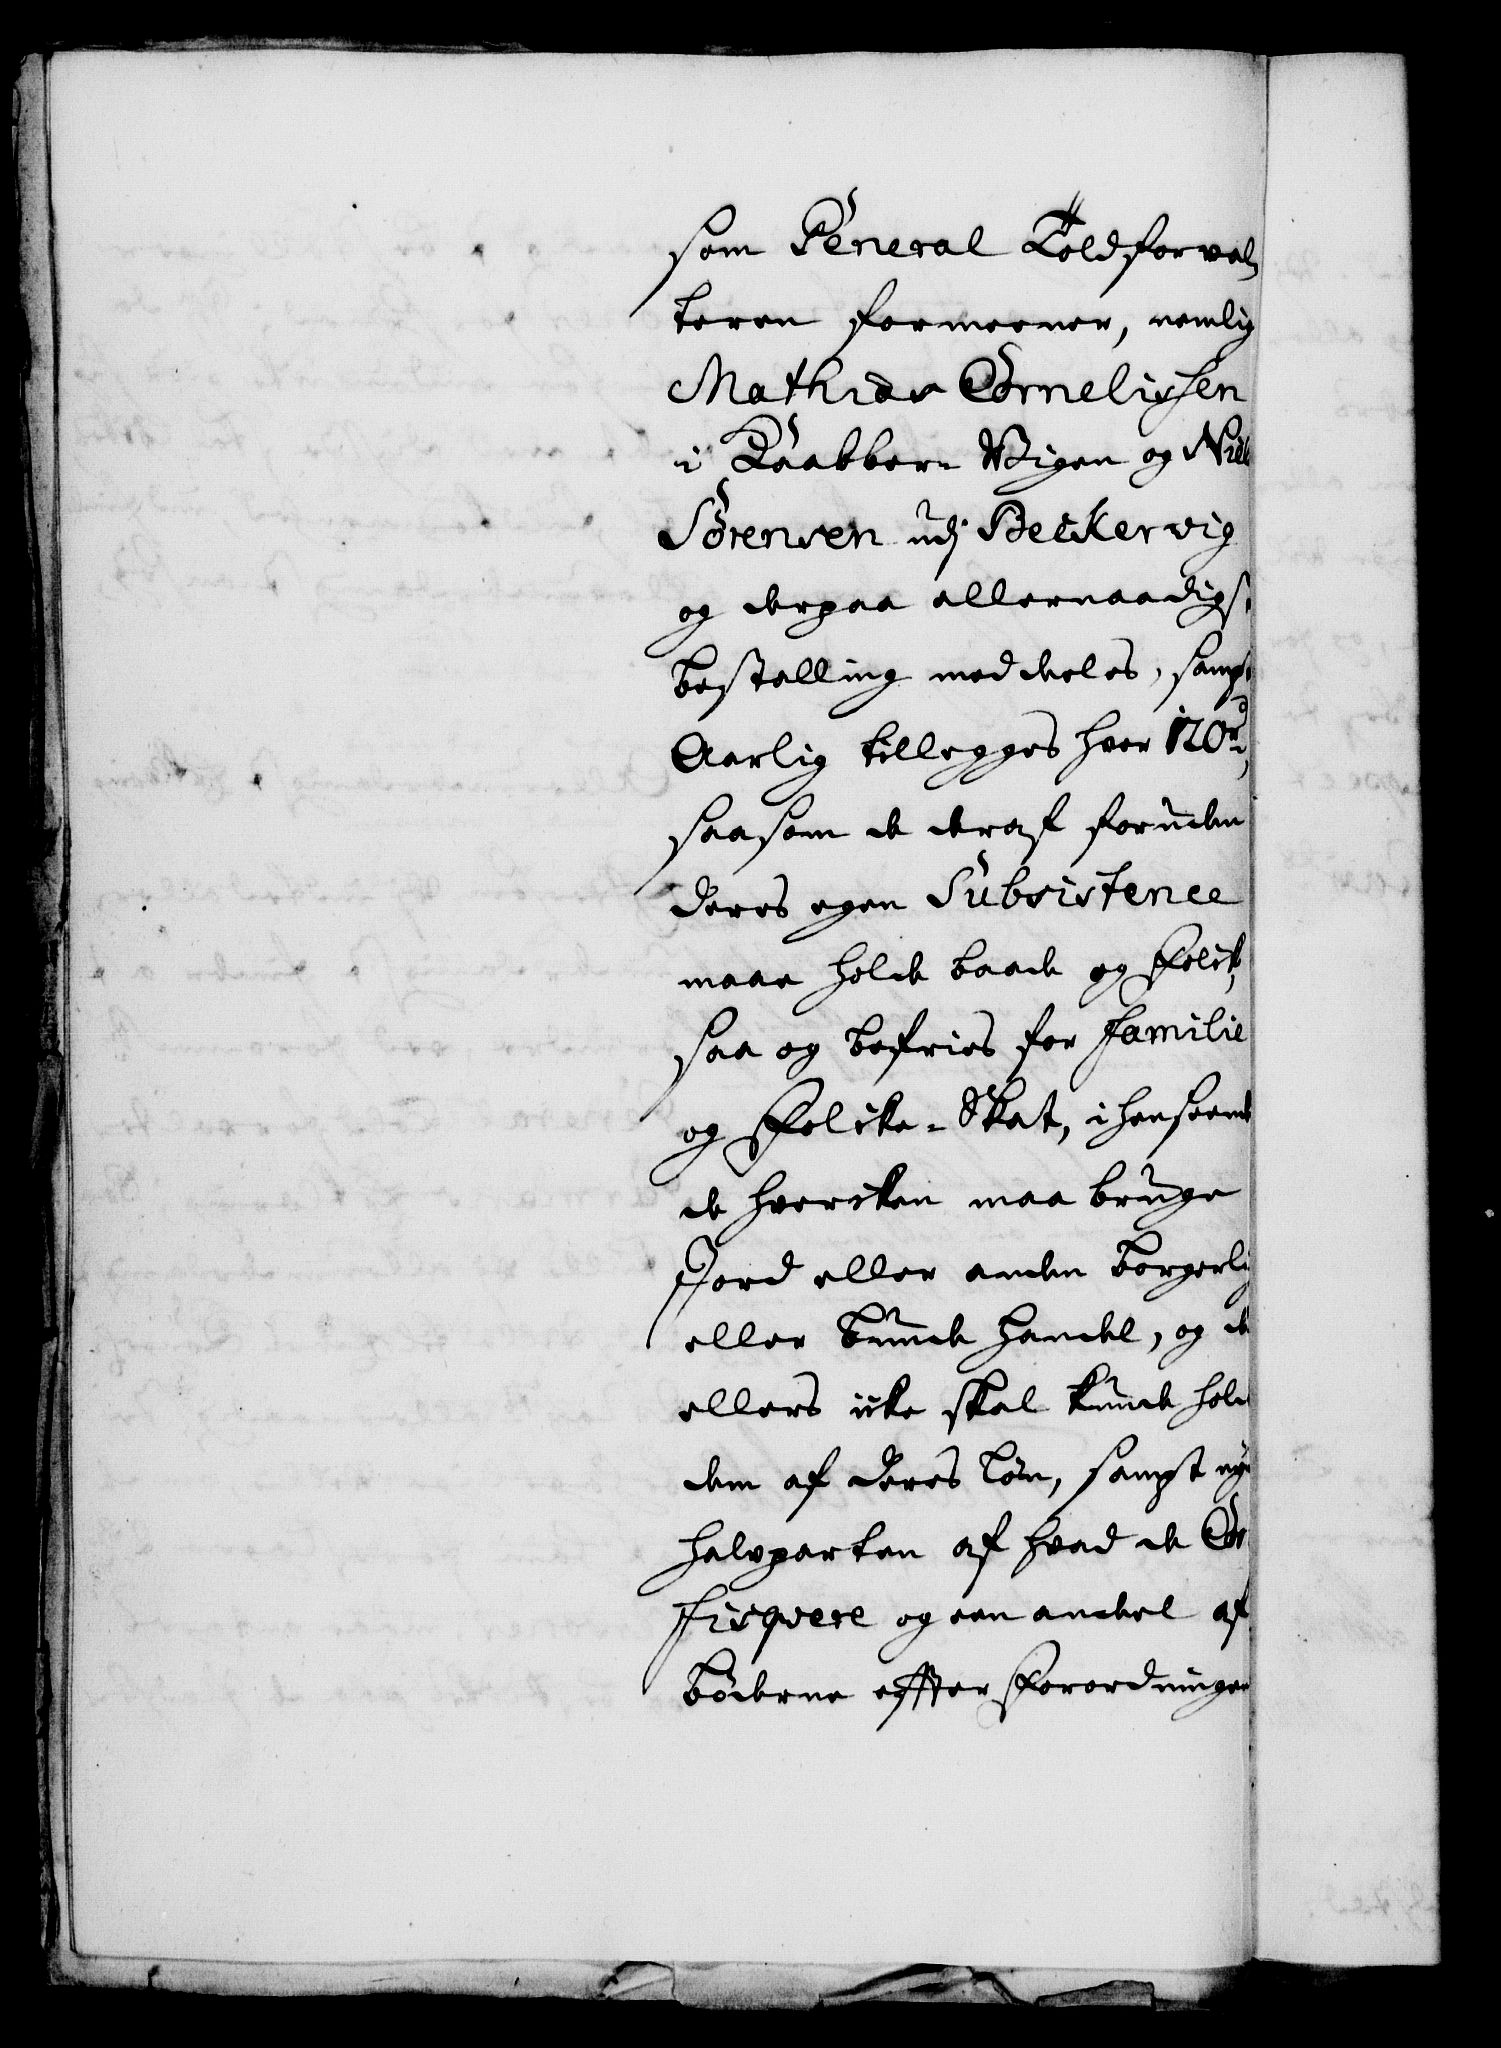 som General Toldforval-
teren formeener, nemlig
Mathias Cornelissen
i Kaabber-Wigen og Niel
Sörensen udj Beckervig
og derpaa allernaadigst
bestalling meddeeles, sampt
Aarlig tillegges hver 120 rd,
saasom de deraf foruden
deres egen Subsistence
maae holde baade og Folck,
saa og befries for Familie
og Folcke-Skat, i henseende
de hvercken maa bruge
Jord eller anden borgerlig
eller bunde handel, og de
ellers icke skal kunde hold
dem af deres løn, sampt nyd
halvparten af hvad de Con
fisqvere og een andeel af
bøderne effter Forordningen